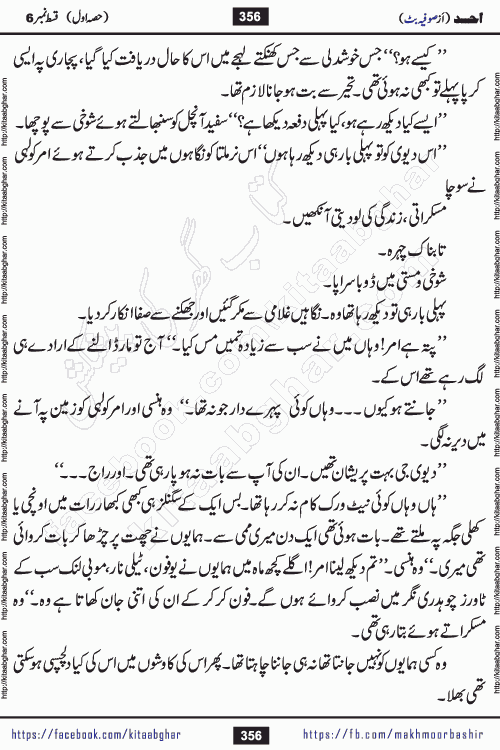 احد (از صوفیہ بٹ) 356 (حصہ اول) قسط نمبر 6
’’کیسے ہو؟‘‘ جس خوشدلی سے جس کھنکتے لہجے میں اس کا حال دریافت کیا گیا، پجاری پہ ایسی
کرپا پہلے تو کبھی نہ ہوئی تھی۔ تحیر سے بت ہو جانا لازم تھا۔
’’ایسے کیا دیکھ رہے ہو، کیا پہلی دفعہ دیکھا ہے؟‘‘ سفید آنچل کو سنبھالتے ہوئے شوخی سے پوچھا۔
’’اس دیوی کو تو پہلی بار ہی دیکھ رہا ہوں‘‘ اس نرملتا کو نگاہوں میں جذب کرتے ہوئے امر کوہلی
نے سوچا
مسکراتی، زندگی کی لو دیتی آنکھیں۔
تابناک چہرہ۔
شوخی و مستی میں ڈوبا سراپا۔
پہلی بار ہی تو دیکھ رہا تھا وہ۔ نگاہیں غلامی سے مکر گئیں اور جھکنے سے صفا انکار کر دیا۔
’’پتہ ہے امر! وہاں میں نے سب سے زیادہ تمہیں مس کیا۔‘‘ آج تو مار ڈالنے کے ارادے ہی
لگ رہے تھے اس کے۔
’’جانتے ہو کیوں ۔۔۔ وہاں کوئی پہرے دار جو نہ تھا۔‘‘ وہ ہنسی اور امر کوہلی کو زمین پہ آنے
میں دیر نہ لگی۔
’’دیوی جی بہت پریشان تھیں۔ ان کی آپ سے بات نہ ہو پا رہی تھی۔ اور راج ۔۔۔‘‘
’’ہاں وہاں کوئی نیٹ ورک کام نہ کر رہا تھا۔ بس ایک کے سگنلز ہی کبھی کبھار رات میں اونچی یا
کھلی جگہ پہ ملتے تھے۔ بات ہوئی تھی ایک دن میری ممی سے۔ ہمایوں نے چھت پر چڑھا کر بات کروائی
تھی میری۔‘‘ وہ ہنسی۔ ’’تم دیکھ لینا امر! اگلے کچھ ماہ میں ہمایوں نے یوفون، ٹیلی نار، موبی لنک سب کے
ٹاورز چوہدری نگر میں نصب کروائے ہوں گے۔ فون کر کر کے ان کی اتنی جان کھاتا ہے وہ۔‘‘ وہ
مسکراتے ہوئے بتا رہی تھی۔
وہ کسی ہمایوں کو نہیں جانتا تھا نہ ہی جاننا چاہتا تھا۔ پھر اس کی کاوشوں میں اس کی کیا دلچسپی ہو سکتی
تھی بھلا۔
http://kitaabghar.com http://kitaabghar.com http://kitaabghar.com http://kitaabghar.com http://kitaabghar.com http://kitaabghar.com http://kitaabghar.com http://kitaabghar.com
کتاب گھر کی پیشکش
facebook.com/kitaabghar
kitaabghar.com
https://facebook.com/kitaabghar 356 https://fb.com/makhmoorbashir